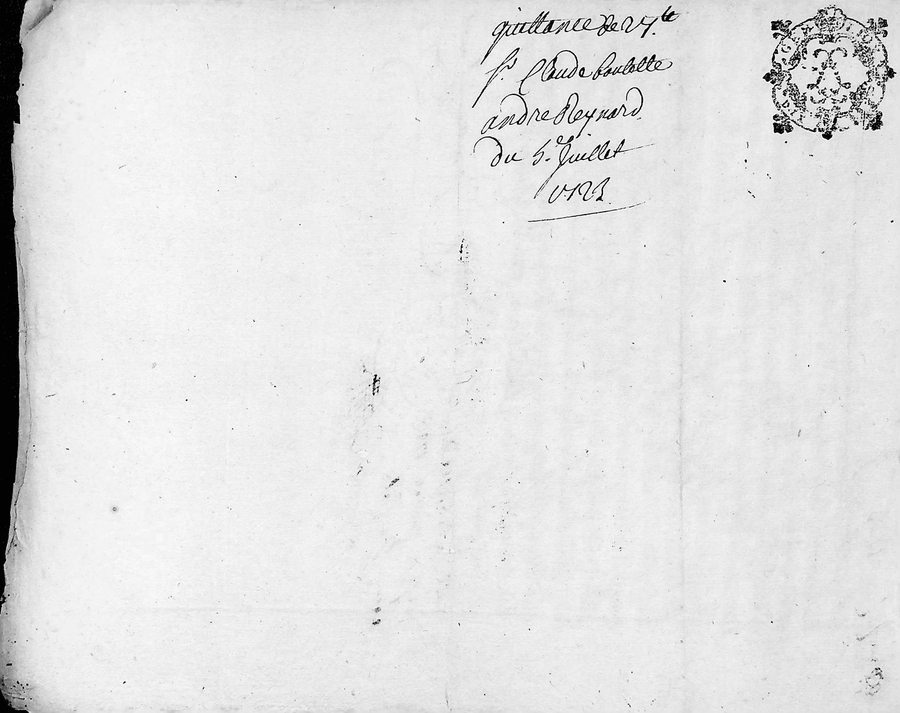 quittance de 27.tt
Sr. Claude boulotte
andre Reynard
du 5.e Juillet
1723